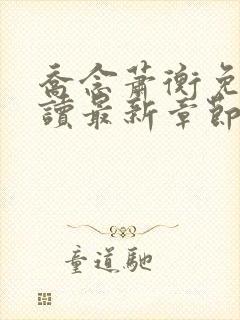 喬念蕭衡免
讀最新章節
童道馳